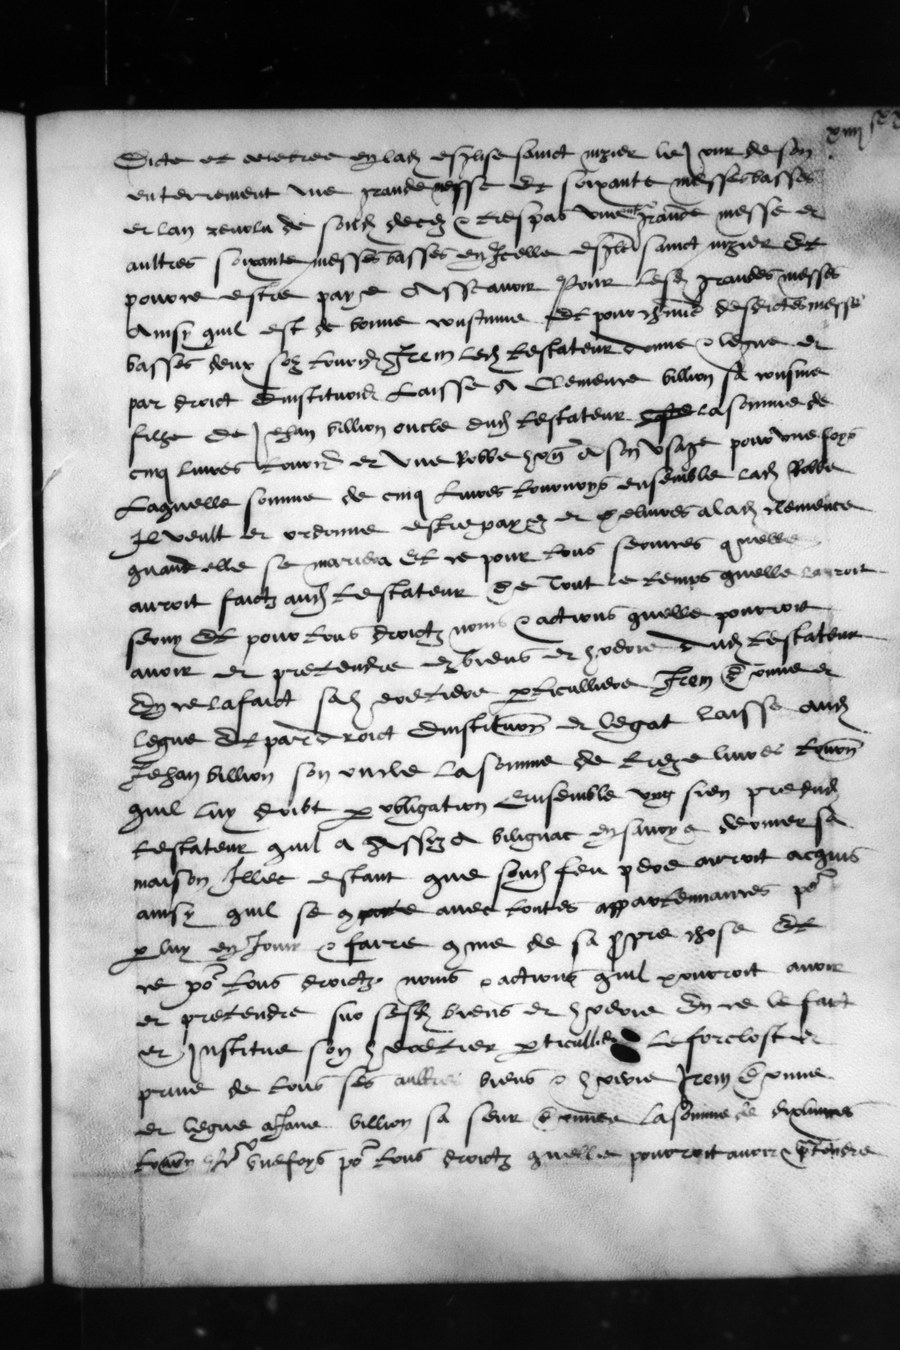 Dicte et celebree en lad esglise sainct nizier le jour de son
enterrement une grande messe et soixante messes basses
et lan revolu de soud deces & trespas une grande messe et
aultres soixante messes basses en Icelle esglise sainct nizier et
pouvre estre paye Asscavoir Pour lesd grandes messes
Ainsy quil est de bonne coustume Et pour chune desdictes messes
basses deux solz tournoys Item led testateur donne & legue et
par droict dinstitution Laisse a Clemence billion sa cousine
fille de Jehan billion oncle dud testateur la somme de
cinq livres tourn et une Robbe a son usage pour une foys
Laquelle somme de cinq livres tournoys ensemble lad Robbe
Il veult et ordonne estre payez et delivres a lad clemence
quand elle se mariera Et ce pour tous services quelle
auroit faictz aud testateur de tout le temps quelle lauroit
servy Et pour tous droictz noms & actions quelle pourroit
avoir et pretendre es biens et hoirie dud testateur
En ce la faict sad heretiere perticulliere Item donne et
legue Et par droict dinstitution et legat laisse aud
Jehan billion son oncle La somme de treze livres tourn
quil luy doibt par obligation Ensemble ung sien pre dud
testateur quil a Assis a bilignac en savoye dernier sa
maison Illec estant que soud feu pere auroit acquis
ainsy quil se avec toutes appartenances po
par luy en Jouir & faire come de sa propre chose Et
ce po tous droictz noms & actions quil pourroit avoir
et pretendre sur sesd biens et hoirie En ce le faict
et Institue son heretier perticullier Le forclost et
prive de tous ses aultres biens & hoirie Item donne
et legue a Jane billion sa seur La somme de dix livres
tourn une foys po tous droictz quelle pourroit avoir & pretendre